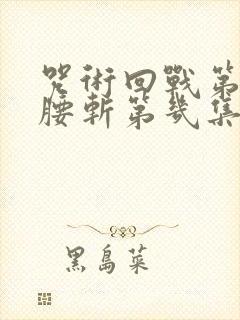 咒術回戰第
腰斬第幾集
黑島菜